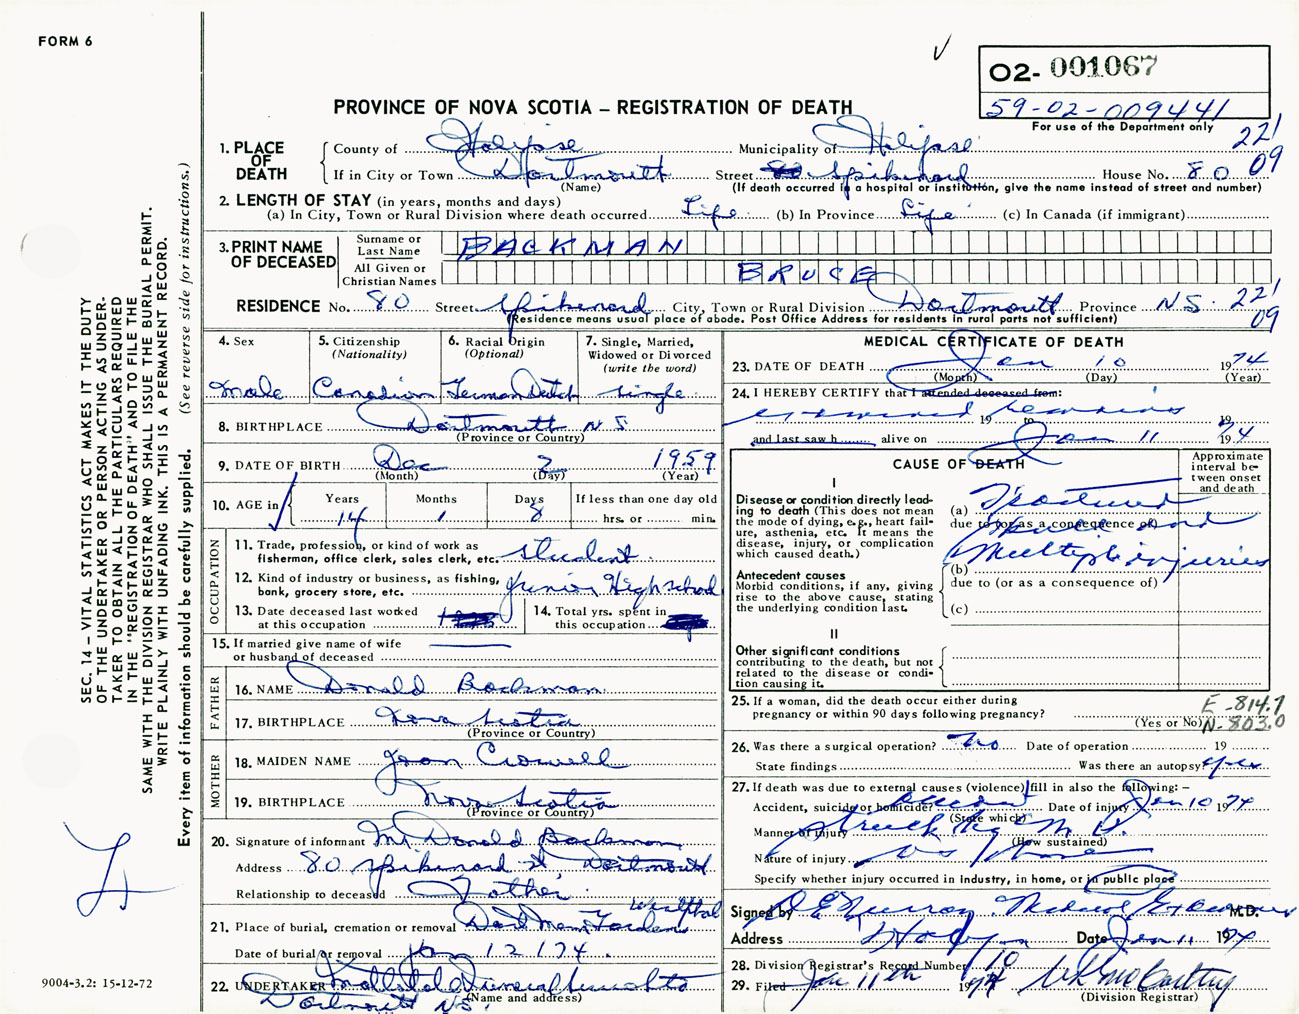 FORM 6
02- 001067
59-02-009441
For use of the Department only
PROVINCE OF NOVA SCOTIA – REGISTRATION OF DEATH
221
09
1. PLACE OF DEATH
County of Halifax Municipality of Halifax
If in City or Town Dartmouth Street Spikenard House No. 80
(Name) (If death occurred in a hospital or institution, give the name instead of street and number)
2. LENGTH OF STAY (in years, months and days)
(a) In City, Town or Rural Division where death occurred Life (b) In Province Life (c) In Canada (if immigrant)
3. PRINT NAME OF DECEASED
Surname or Last Name BACKMAN
All Given or Christian Names BRUCE
RESIDENCE No. 80 Street Spikenard City, Town or Rural Division Dartmouth Province N.S.
221
09
(Residence means usual place of abode. Post Office Address for residents in rural parts not sufficient)
4. Sex
Male
5. Citizenship (Nationality)
Canadian
6. Racial Origin (Optional)
German Dutch
7. Single, Married, Widowed or Divorced (write the word)
single
8. BIRTHPLACE Dartmouth N S
(Province or Country)
9. DATE OF BIRTH Dec 2 1959
(Month) (Day) (Year)
10. AGE in Years Months Days If less than one day old
14 1 8 hrs. or min.
OCCUPATION
11. Trade, profession, or kind of work as fisherman, office clerk, sales clerk, etc. student
12. Kind of industry or business, as fishing, bank, grocery store, etc. Junior High school
13. Date deceased last worked at this occupation
14. Total yrs. spent in this occupation
15. If married give name of wife or husband of deceased
FATHER
16. NAME Donald Backman
17. BIRTHPLACE Nova Scotia
(Province or Country)
MOTHER
18. MAIDEN NAME Joan Crowell
19. BIRTHPLACE Nova Scotia
(Province or Country)
20. Signature of informant Mr Donald Backman
Address 80 Spikenard St, Dartmouth
Relationship to deceased Father
21. Place of burial, cremation or removal Dart Mem Gardens Westphal
Date of burial or removal Jan 12 174
22. UNDERTAKER Funeral
Dartmouth N.S.
(Name and address)
MEDICAL CERTIFICATE OF DEATH
23. DATE OF DEATH Jan 10 1974
(Month) (Day) (Year)
24. I HEREBY CERTIFY that I attended deceased from:
examined remains
19 to 19
and last saw h alive on Jan 11 1974
CAUSE OF DEATH
Approximate interval between onset and death
I
Disease or condition directly leading to death (This does not mean the mode of dying, e.g., heart failure, asthenia, etc. It means the disease, injury, or complication which caused death.)
(a) Fractured
due to (or as a consequence of)
skull and
Multiple injuries
(b)
due to (or as a consequence of)
(c)
Antecedent causes
Morbid conditions, if any, giving rise to the above cause, stating the underlying condition last.
II
Other significant conditions
contributing to the death, but not related to the disease or condition causing it.
25. If a woman, did the death occur either during pregnancy or within 90 days following pregnancy?
(Yes or No)
E-814.7
N-803.0
26. Was there a surgical operation? No Date of operation 19
State findings Was there an autopsy? yes
27. If death was due to external causes (violence) fill in also the following: –
Accident, suicide or homicide? accident Date of injury Jan 10 1974
(State which)
Manner of injury struck by M.V.
(How sustained)
Nature of injury as above
Specify whether injury occurred in industry, in home, or in public place
Signed by Murray Medical Examiner M.D.
Address Date Jan 11 1974
28. Division Registrar's Record Number 10
29. Filed Jan 11th 1974 McCarthy
(Division Registrar)
SEC. 14 – VITAL STATISTICS ACT MAKES IT THE DUTY
OF THE UNDERTAKER OR PERSON ACTING AS UNDER-
TAKER TO OBTAIN ALL THE PARTICULARS REQUIRED
IN THE "REGISTRATION OF DEATH" AND TO FILE THE
SAME WITH THE DIVISION REGISTRAR WHO SHALL ISSUE THE BURIAL PERMIT.
WRITE PLAINLY WITH UNFADING INK. THIS IS A PERMANENT RECORD.
Every item of information should be carefully supplied. (See reverse side for instructions.)
9004-3.2: 15-12-72